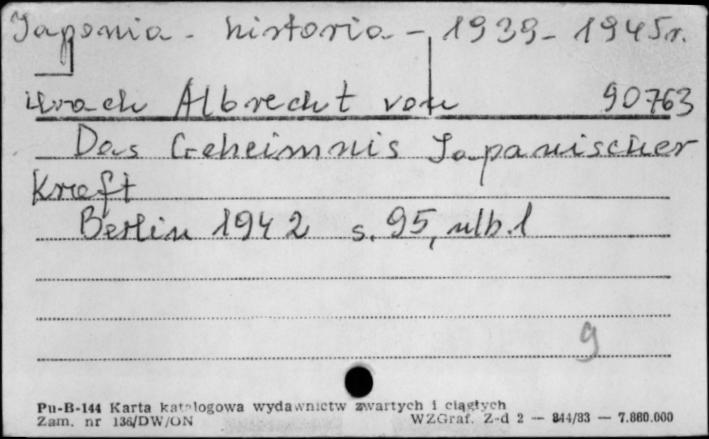 Japonia - historia - 1939 - 1945 r.
Urach Albrecht von 90763
Das Geheimnis Japanischer
Kraft
Berlin 1942 s. 95, nlb. 1
9
Pu-B-144 Karta katalogowa wydawnictw zwartych i ciągłych
Zam. nr 136/DW/ON WZGraf. Z-d 2 — 844/83 — 7.860.000